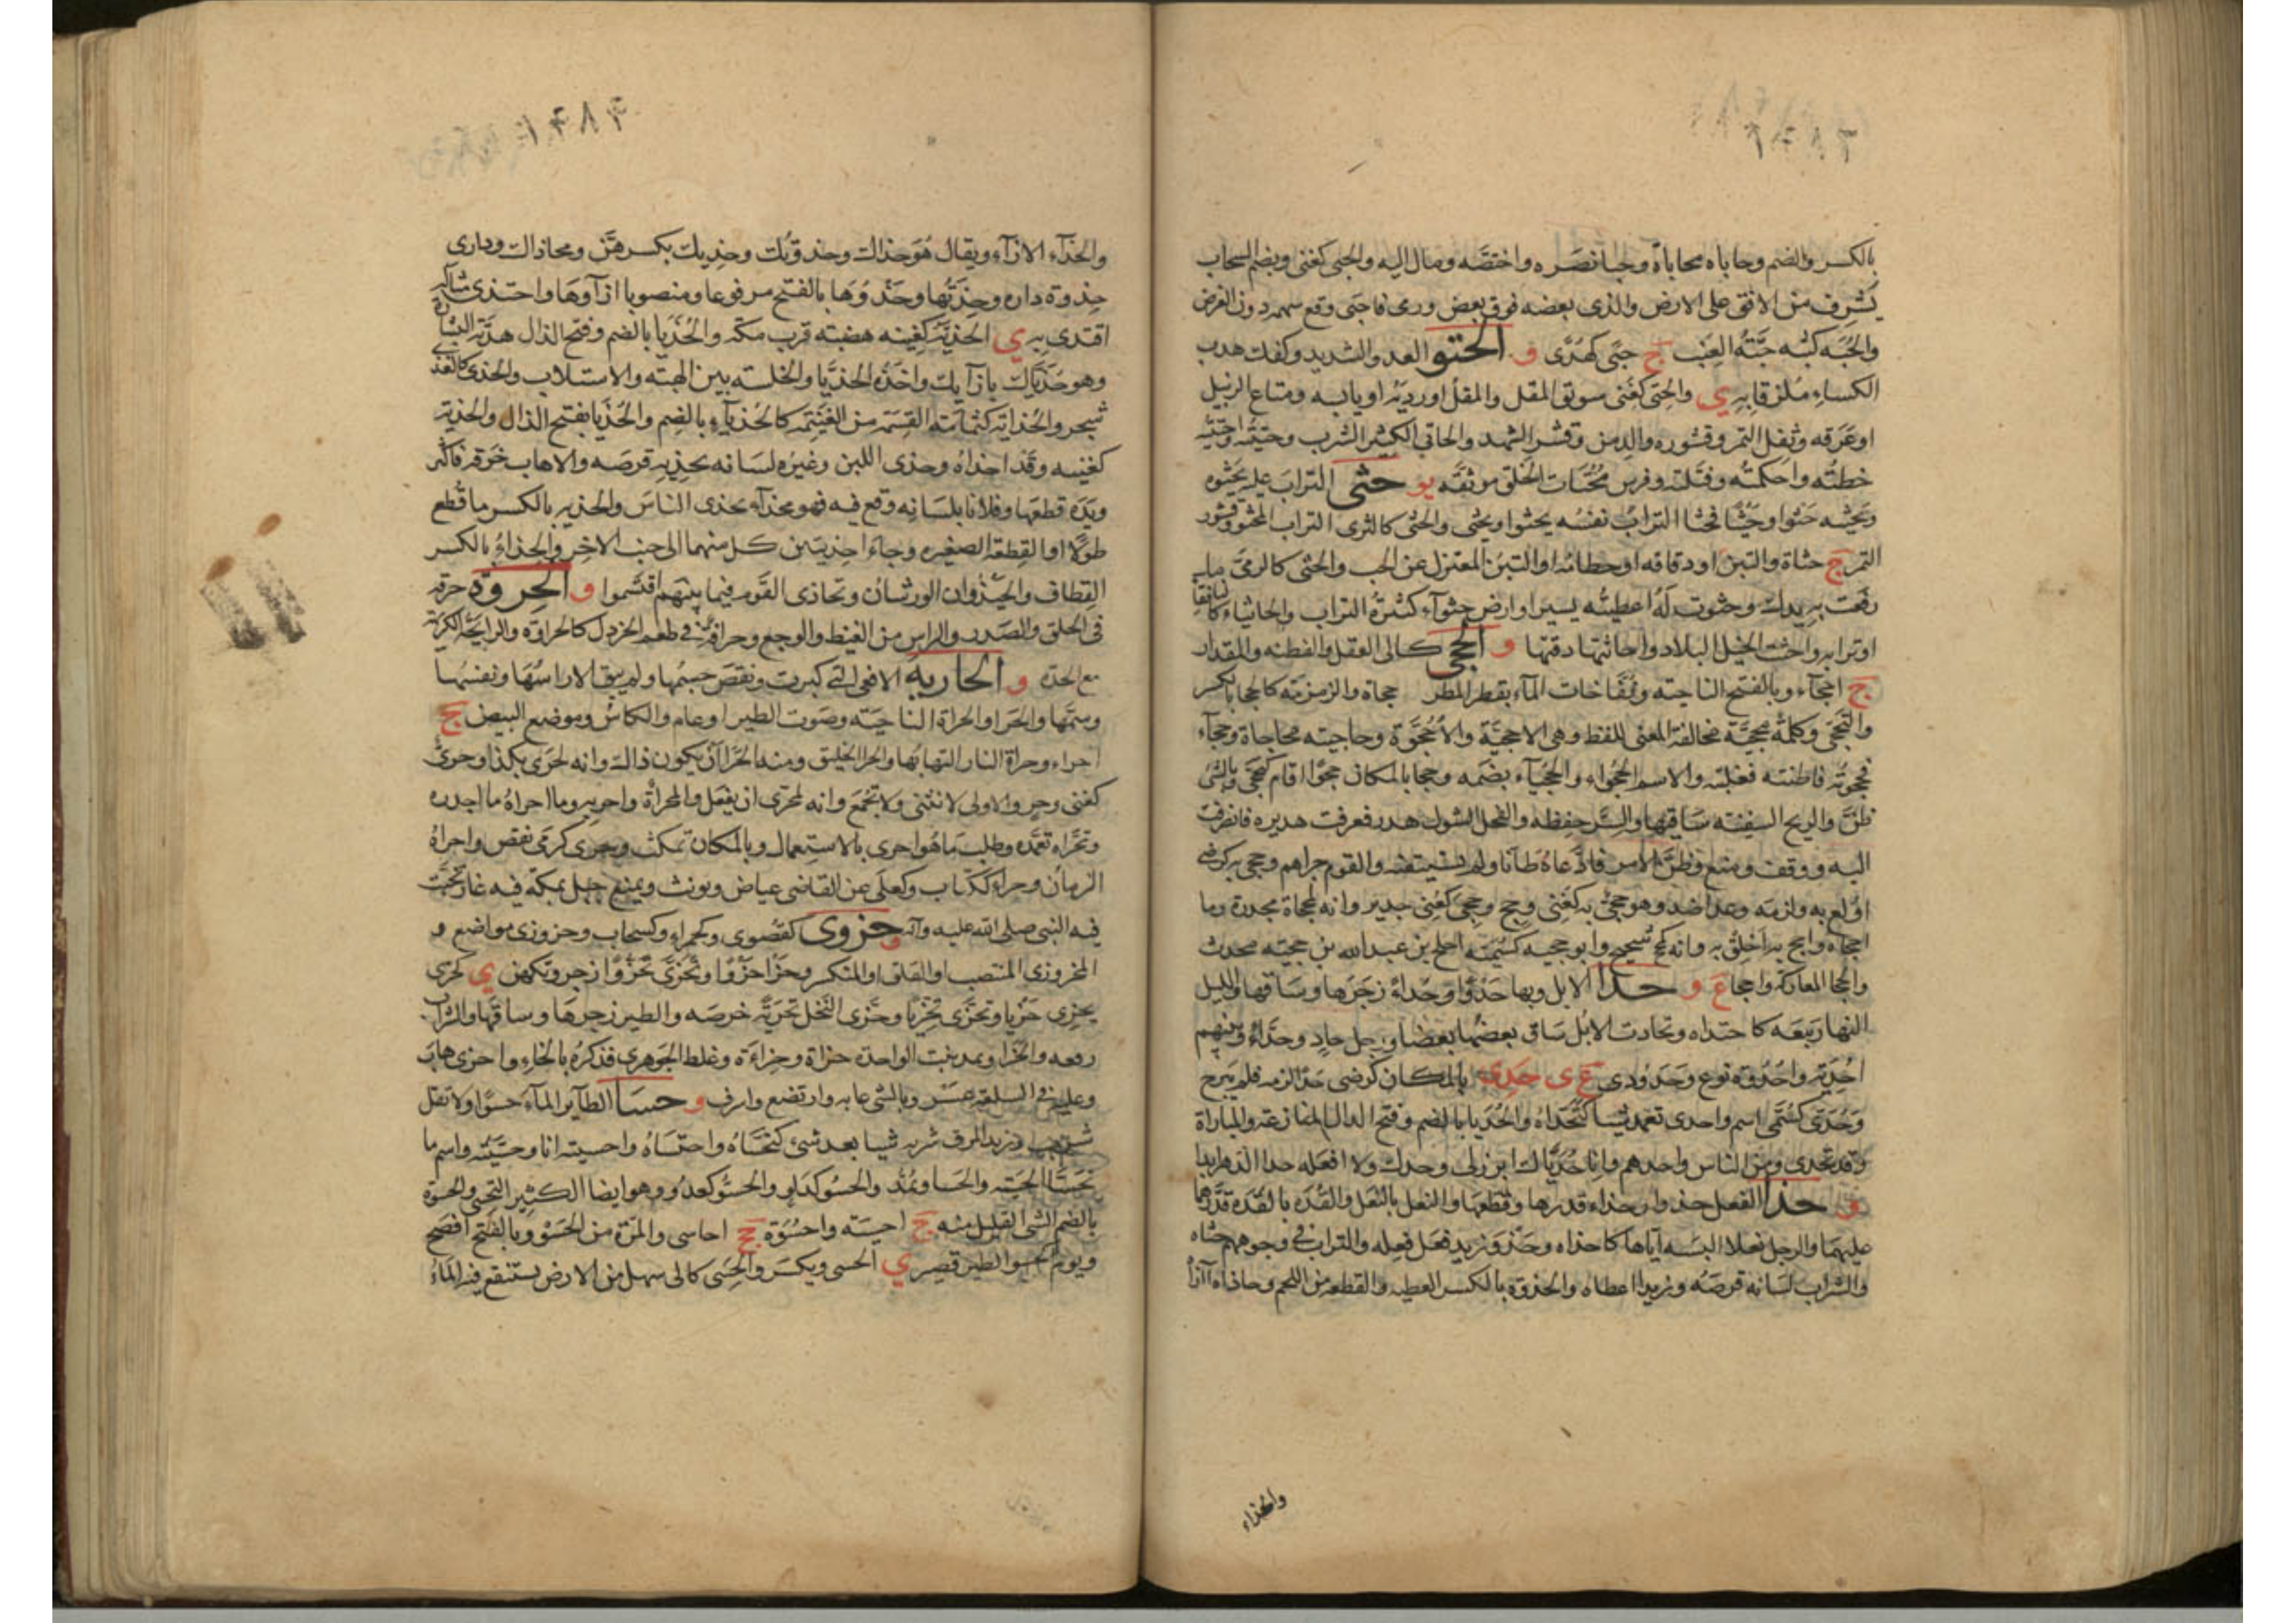 بالكسر والضم وحاباه محاباة وحباء نصره واختصه ومال اليه والحبى كغنى ويضم السحاب
يشرف من الافق على الارض والذى بعضه فوق بعض ورمى فاحبى وقع سهمه دون الغرض
والحبة كثبة حبة العنب ج حبى كهدى و الحتو العدو الشديد وكفك هدب
الكساء ملزقا به ى والحتى كغنى سويق المقل والمقل او رديه او يابسه ومتاع الزبيل
او عرقه وثفل التمر وقشوره والدمن وقشر الشهد والحاتى الكثير الشرب وحتيته واحتيته
خطته واحكمته وفتلته وفرس محتات الخلق موثقه يو حثى التراب عليه يحثوه
ويحثيه حثوا وحثيا فحثا التراب نفسه يحثوا ويحثى والحثى كالثرى التراب المحثو وقشور
التمر ج حثاة والتبن او دقاقه او حطامه او التبن المعتزل عن الحب والحثى كالرمى ما
رفعت به يديك وحثوت له اعطيته يسيرا وارض حثواء كثيرة التراب والحاثياء كالنافقا
او ترابه واحثت الخيل البلاد واحاثتها دقتها و الحجى كالى العقل والفطنة والمقدار
ج احجاء وبالفتح الناحية ونفاخات الماء بقطر المطر حجاة والزمزمة كالحجا بالكسر
والتحجى وكلمة محجية مخالفة المعنى للفظ وهى الاحجية والاحجوة وحاجيته محاجاة وحجاء
فحجوته فاطنته فغلبته والاسم الحجوا والحجياء بضمه وحجا بالمكان حجوا اقام كتحجى وبالشى
ظن والريح السفينة ساقتها والسر حفظه والفحل الشول هدر فعرفت هديره فانصرفت
اليه ووقف ومنع وظن الامر فادعاه ظانا ولم يستيقنه والقوم جزاهم وحجى به كرضى
اولع به ولزمه وعدا ضد وهو حجى به كغنى وحج وحجى كفتى جدير وانه لمحجاة مجدرة وما
احجاه واحج به اخلق به وانه لحج شحيح وابو حجيه كسمية اجلح بن عبد الله بن حجية محدث
والحجا المعاركة واحجاء ع و حدا الابل وبها حدوا وحداء زجرها وساقها والليل
النهار تبعه كاحتداه وتحادت الابل ساق بعضها بعضا ورجل حاد وحداء وبينهم
احدية واحدوة نوع وحدودى ع ى حدى بالمكان كرضى حدا لزمه فلم يبرح
وحدى كسمى اسم واحدى تعمد شيا كتحداه والحديا بالضم وفتح الدال المنازعة والمباراة
وقد تحدى ومن الناس واحدهم وانا حدياك ابرز لى وحدك ولا افعله حدا الدهر ابدا
و حذا النعل حذوا وحذاء قدرها وقطعها والنعل بالنعل والقذة بالقذة قدرهما
عليهما والرجل نعلا البسه اياها كاحذاه وحذو زيد فعل فعله والتراب فى وجوههم حثاه
والشراب لسانه قرصه وزيدا اعطاه والحذوة بالكسر العطية والقطعة من اللحم وحاذاه آزاه
والحذاء
والحذاء الازاء ويقال هو حذاءك وحذوتك وحذتك بكسرهن ومحاذاك ودارى
حذوة داره وحذتها وحذوها بالفتح مرفوعا ومنصوبا ازاؤها واحتذى مثاله
اقتدى به ى الحذية كغنية هضبة قرب مكة والحذيا بالضم وفتح الذال هدية البشارة
وهو حذياك بازايك واخذه الحذيا والخلسة بين الهبة والاستلاب والحذى كالغذى
شجر والحذاية كثمامة القسمة من الغنيمة كالحذياء بالضم والحذيا بفتح الذال والحذية
كغنية وقد احذاه وحذى اللبن وغيره لسانه يحذيه قرصه والاهاب خرقه فاكثر
ويده قطعها وفلانا بلسانه وقع فيه فهو محذاء يحذى الناس والحذية بالكسر ما قطع
طولا او القطعة الصغيرة وجاءا حذيتين كل منهما الى جنب الاخر والحذاء بالكسر
القطاف والحيذوان الورشان وتحاذى القوم فيما بينهم اقتسموا و الحروة حرقة
فى الحلق والصدر والراس من الغيظ والوجع وحرافة فى طعم الخردل كالحراوة والرايحة الكريهة
مع الحدة و الحارية الافعى التى كبرت ونقص جسمها ولم يبق الا راسها ونفسها
وسمها والحرا والحراة الناحية وصوت الطير او عام والكناس وموضع البيض ج
احراء وحراة النار التهابها والحرا الخليق ومنه بالحرا ان يكون ذاك وانه لحرى بكذا وحرى
كغنى وحر والاولى لا تثنى ولا تجمع وانه لمحرى ان يفعل والمحراة واحر به وما احراه ما اجدره
وتحراه تعمده وطلب ما هو احرى بالاستعمال وبالمكان تمكث وحرى كرمى نقص واحراه
الزمان وحراء ككتاب وكعلى عن القاضى عياض ويونث ويمنع جبل بمكة فيه غار تحنث
فيه النبى صلى الله عليه وآله و حزوى كقصوى وكحمراء وكسحاب وحزوزى مواضع و
المحزوزى المنتصب او القلق او المنكسر وحزا حزوا وتحزى تحزوا زجر وتكهن ى كحزى
يحزى حزيا وتحزى تحزيا وحزى النخل تحزية خرصه والطير زجرها وساقها والسراب
رفعه والحزا ويمد نبت الواحدة حزاة وحزاءة وغلط الجوهرى فذكره بالخاء واحزى هاب
وعليه فى السلعة عسر وبالشى عابه وارتفع واشرف و حسا الطاير الماء حسوا ولا تقل
شرب وزيد المرق شربه شيا بعد شئ كتحساه واحتساه واحسيته انا وحسيته واسم ما
يتحسا الحسية والحسا ويمد والحسو كدلو والحسو كعدو وهو ايضا الكثير التحسى والحسوة
بالضم الشى القليل منه ج احسية واحسوة جج احاسى والمرة من الحسو وبالفتح افصح
ويوم كحسو الطير قصير ى الحسى ويكسر والحسى كالى سهل من الارض يستنقع فيه الماء